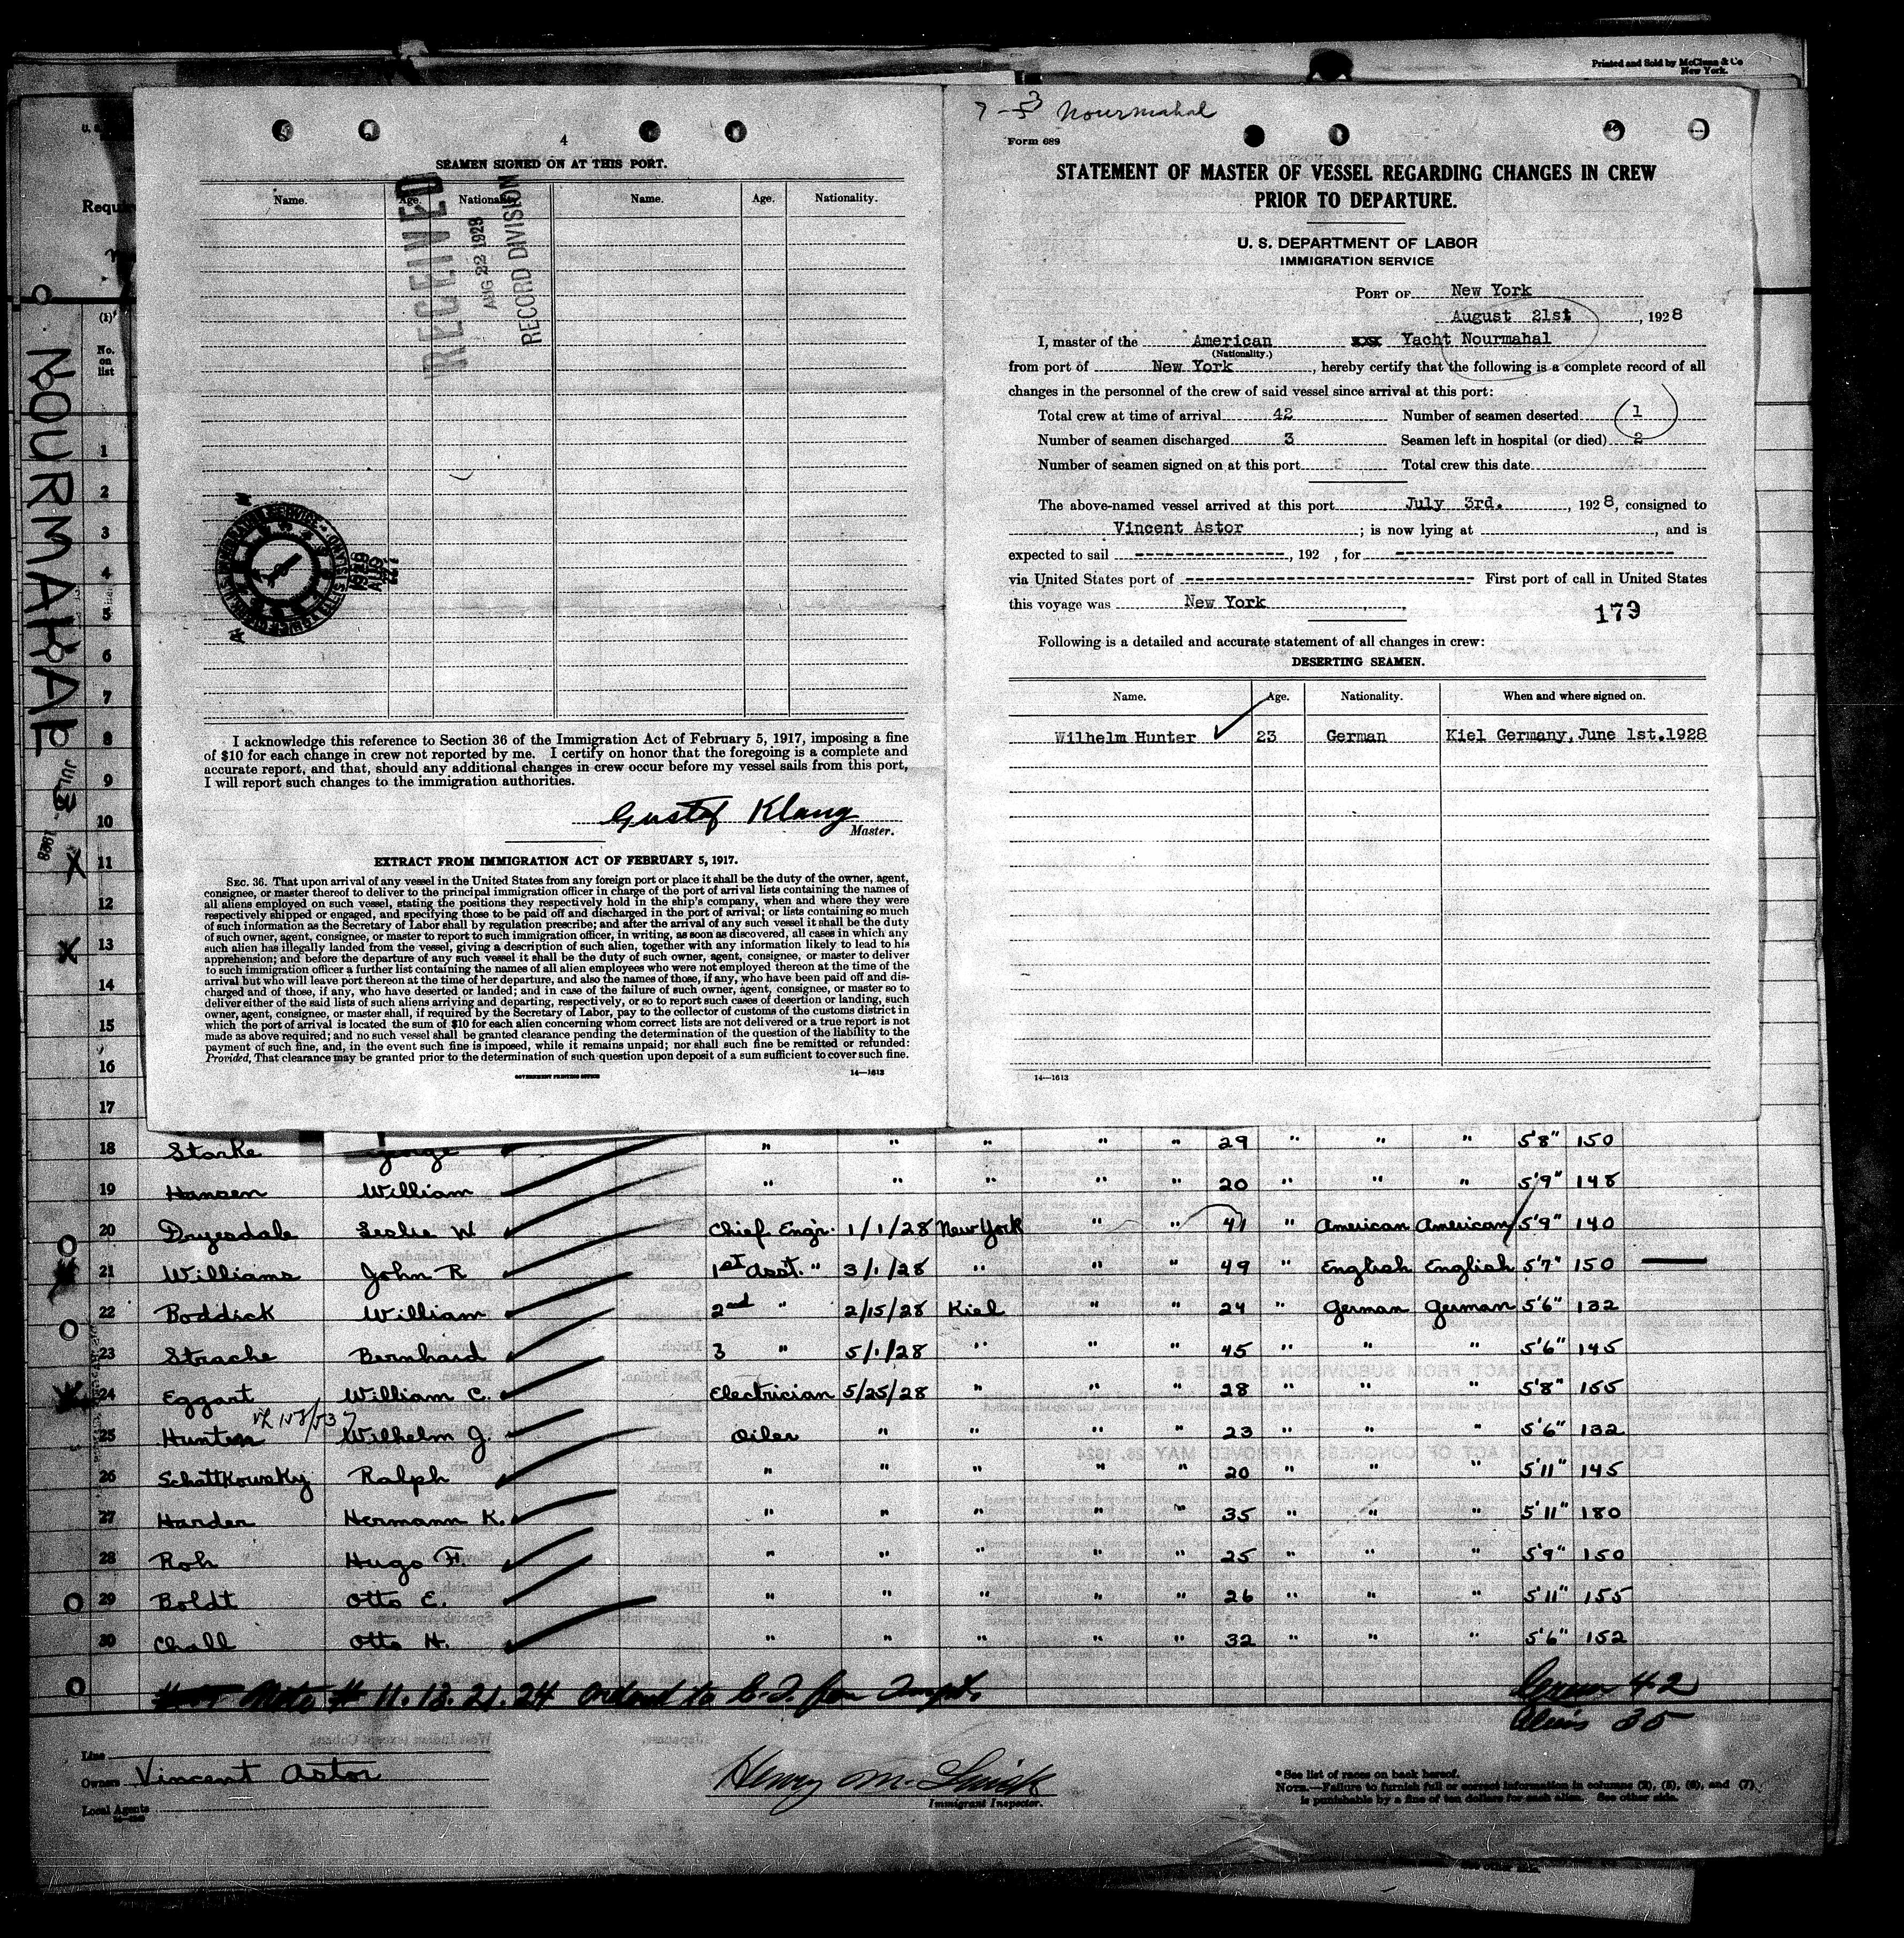 Printed and Sold by McClunn & Co
New York.
4
SEAMEN SIGNED ON AT THIS PORT.
Name. Age. Nationality. Name. Age. Nationality.
RECEIVED
AUG 22 1928
RECORD DIVISION
I acknowledge this reference to Section 36 of the Immigration Act of February 5, 1917, imposing a fine
of $10 for each change in crew not reported by me. I certify on honor that the foregoing is a complete and
accurate report, and that, should any additional changes in crew occur before my vessel sails from this port,
I will report such changes to the immigration authorities.
Gustaf Klang
Master.
EXTRACT FROM IMMIGRATION ACT OF FEBRUARY 5, 1917.
SEC. 36. That upon arrival of any vessel in the United States from any foreign port or place it shall be the duty of the owner, agent,
consignee, or master thereof to deliver to the principal immigration officer in charge of the port of arrival lists containing the names of
all aliens employed on such vessel, stating the positions they respectively hold in the ship's company, when and where they were
respectively shipped or engaged, and specifying those to be paid off and discharged in the port of arrival; or lists containing so much
of such information as the Secretary of Labor shall by regulation prescribe; and after the arrival of any such vessel it shall be the duty
of such owner, agent, consignee, or master to report to such immigration officer, in writing, as soon as discovered, all cases in which any
such alien has illegally landed from the vessel, giving a description of such alien, together with any information likely to lead to his
apprehension; and before the departure of any such vessel it shall be the duty of such owner, agent, consignee, or master to deliver
to such immigration officer a further list containing the names of all alien employees who were not employed thereon at the time of the
arrival but who will leave port thereon at the time of her departure, and also the names of those, if any, who have been paid off and dis-
charged and of those, if any, who have deserted or landed; and in case of the failure of such owner, agent, consignee, or master so to
deliver either of the said lists of such aliens arriving and departing, respectively, or so to report such cases of desertion or landing, such
owner, agent, consignee, or master shall, if required by the Secretary of Labor, pay to the collector of customs of the customs district in
which the port of arrival is located the sum of $10 for each alien concerning whom correct lists are not delivered or a true report is not
made as above required; and no such vessel shall be granted clearance pending the determination of the question of the liability to the
payment of such fine, and, in the event such fine is imposed, while it remains unpaid; nor shall such fine be remitted or refunded:
Provided, That clearance may be granted prior to the determination of such question upon deposit of a sum sufficient to cover such fine.
GOVERNMENT PRINTING OFFICE 14—1613
7-53 Nourmahal
Form 689
STATEMENT OF MASTER OF VESSEL REGARDING CHANGES IN CREW
PRIOR TO DEPARTURE.
U. S. DEPARTMENT OF LABOR
IMMIGRATION SERVICE
PORT OF New York
August 21st, 1928
I, master of the American xxx Yacht Nourmahal
(Nationality.)
from port of New York, hereby certify that the following is a complete record of all
changes in the personnel of the crew of said vessel since arrival at this port:
Total crew at time of arrival 42 Number of seamen deserted 1
Number of seamen discharged 3 Seamen left in hospital (or died) 2
Number of seamen signed on at this port Total crew this date
The above-named vessel arrived at this port July 3rd., 1928, consigned to
Vincent Astor; is now lying at , and is
expected to sail ----------------, 192 , for ----------------
via United States port of ---------------- First port of call in United States
this voyage was New York
179
Following is a detailed and accurate statement of all changes in crew:
DESERTING SEAMEN.
Name. Age. Nationality. When and where signed on.
Wilhelm Hunter 23 German Kiel Germany, June 1st.1928
14—1613
NOURMAHAL JUL 3 - 1928
(1)
No. on list
1
2
3
4
5
6
7
8
9
10
X 11
12
X 13
14
15
16
17
18 Starke George " " " " " 29 " " " 5'8" 150
19 Hansen William " " " " " 20 " " " 5'9" 148
20 Drysdale Leslie W Chief Engr. 1/1/28 New York " " 41 " American American 5'9" 140
21 Williams John R 1st Asst. " 3/1/28 " " " 49 " English English 5'7" 150
22 Boddick William 2nd " 2/15/28 Kiel " " 24 " German German 5'6" 132
23 Strache Bernhard 3 " 5/1/28 " " " 45 " " " 5'6" 145
24 Eggart William C. Electrician 5/25/28 " " " 28 " " " 5'8" 155
25 Hunter Wilhelm J. Oiler " " " " 23 " " " 5'6" 132
26 Schattkowsky Ralph " " " " " 20 " " " 5'11" 145
27 Harder Hermann K. " " " " " 35 " " " 5'11" 180
28 Roh Hugo F. " " " " " 25 " " " 5'9" 150
29 Boldt Otto E. " " " " " 26 " " " 5'11" 155
30 Chall Otto H. " " " " " 32 " " " 5'6" 152
Note # 11. 13. 21. 24 Ordered to E. I. for Inspt.
Crew 42
Aliens 35
Line
Owners Vincent Astor
Local Agents
Henry M.
Immigrant Inspector.
* See list of races on back hereof.
NOTE.—Failure to furnish full or correct information in columns (2), (5), (6), and (7)
is punishable by a fine of ten dollars for each alien. See other side.